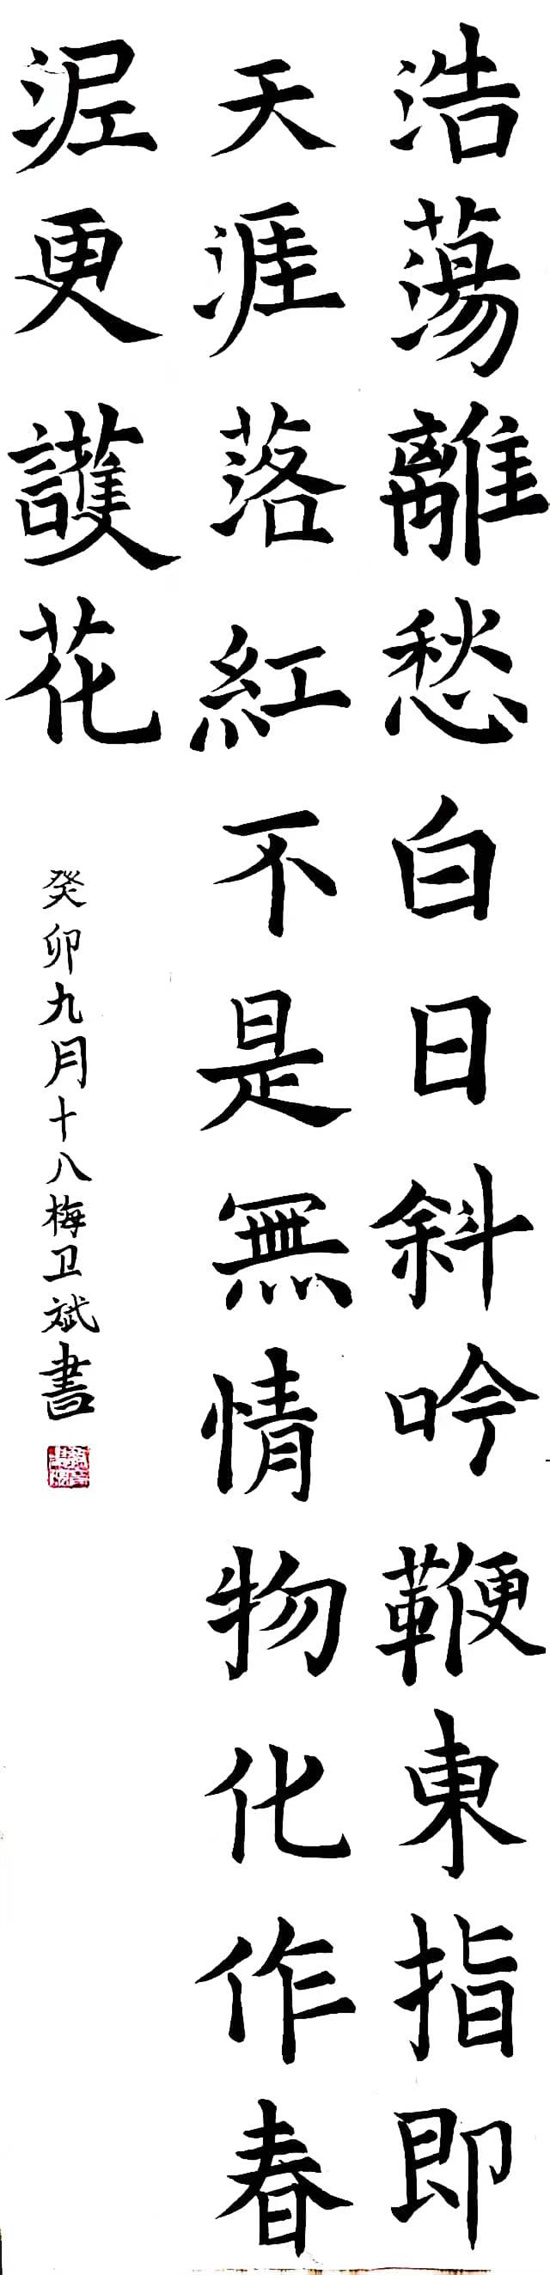 浩蕩離愁白日斜吟鞭東指即
天涯落紅不是無情物化作春
泥更護花
癸卯九月十八梅卫斌書